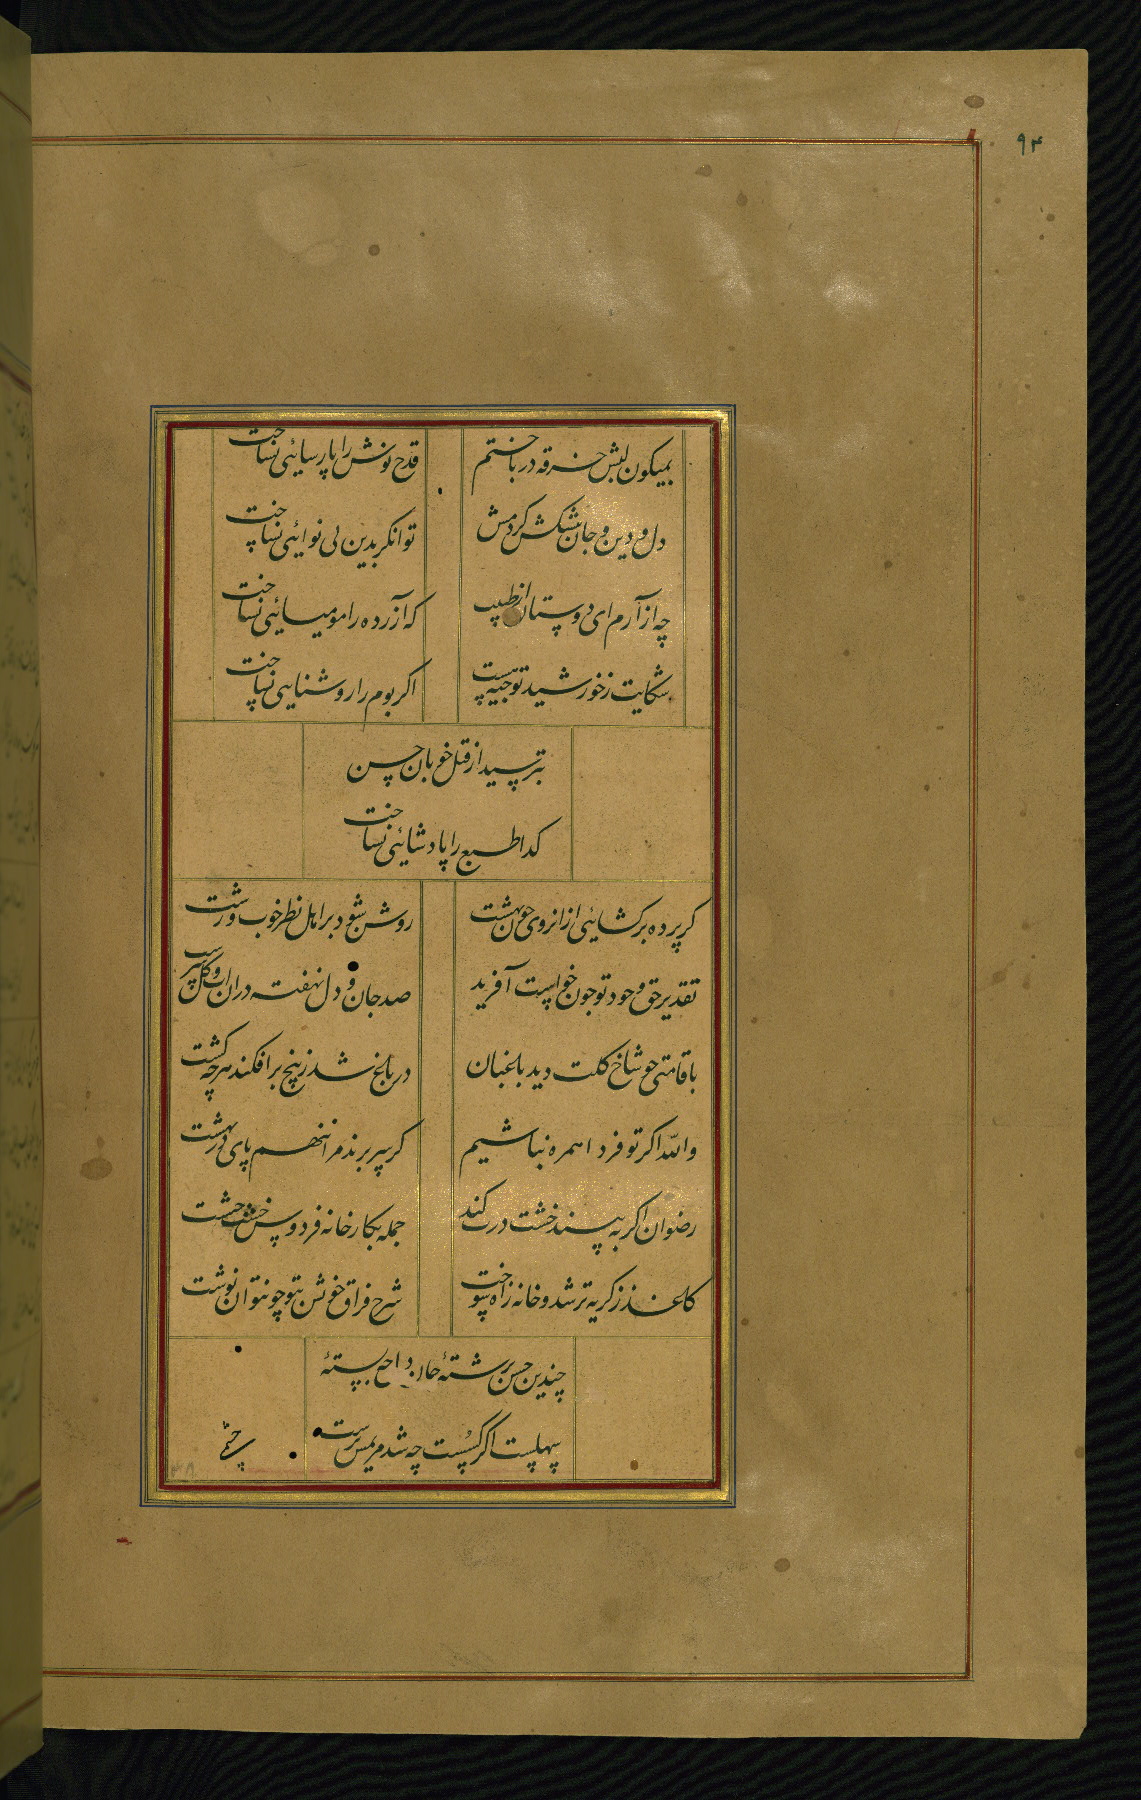 ۹۴
بمیکون لبش خرقه در باختم
قدح نوش را پارسایئی نساخت
دل و دین و جان پیشکش کردمش
توانکر بدین بی نوایئی نساخت
چه ازارم ای دوستان از طبیب
که آزرده را مومیایئی نساخت
شکایت ز خورشید توجیه نیست
اکر بوم را روشنایی نساخت
بترسید از قتل خوبان حسن
کدا طبع را پادشایئی نساخت
کر پرده برکشایئی ازان روی چون بهشت
روشن شود بر اهل نظر خوب و زشت
تقدیر حق وجود تو چون خواست آفرید
صد جان و دل نهفت دران آب و کل سرشت
با قامتی چو شاخ کلت دید باغبان
در باغ شد ز بیخ برافکند هرچه کشت
والله اکر تو فردا همره نباشیم
کر سر برند مرا ننهم پای در بهشت
رضوان اکر به بیند خشت درت کند
جمله بکار خانه فردوس خشت خشت
کاغذ ز کریه تر شد و خانه ز آه سوخت
شرح فراق خویش بتو چون توان نوشت
چندین حسن برشتهٔ جان
سهلست اکر کسست چه شد مریمش برشت